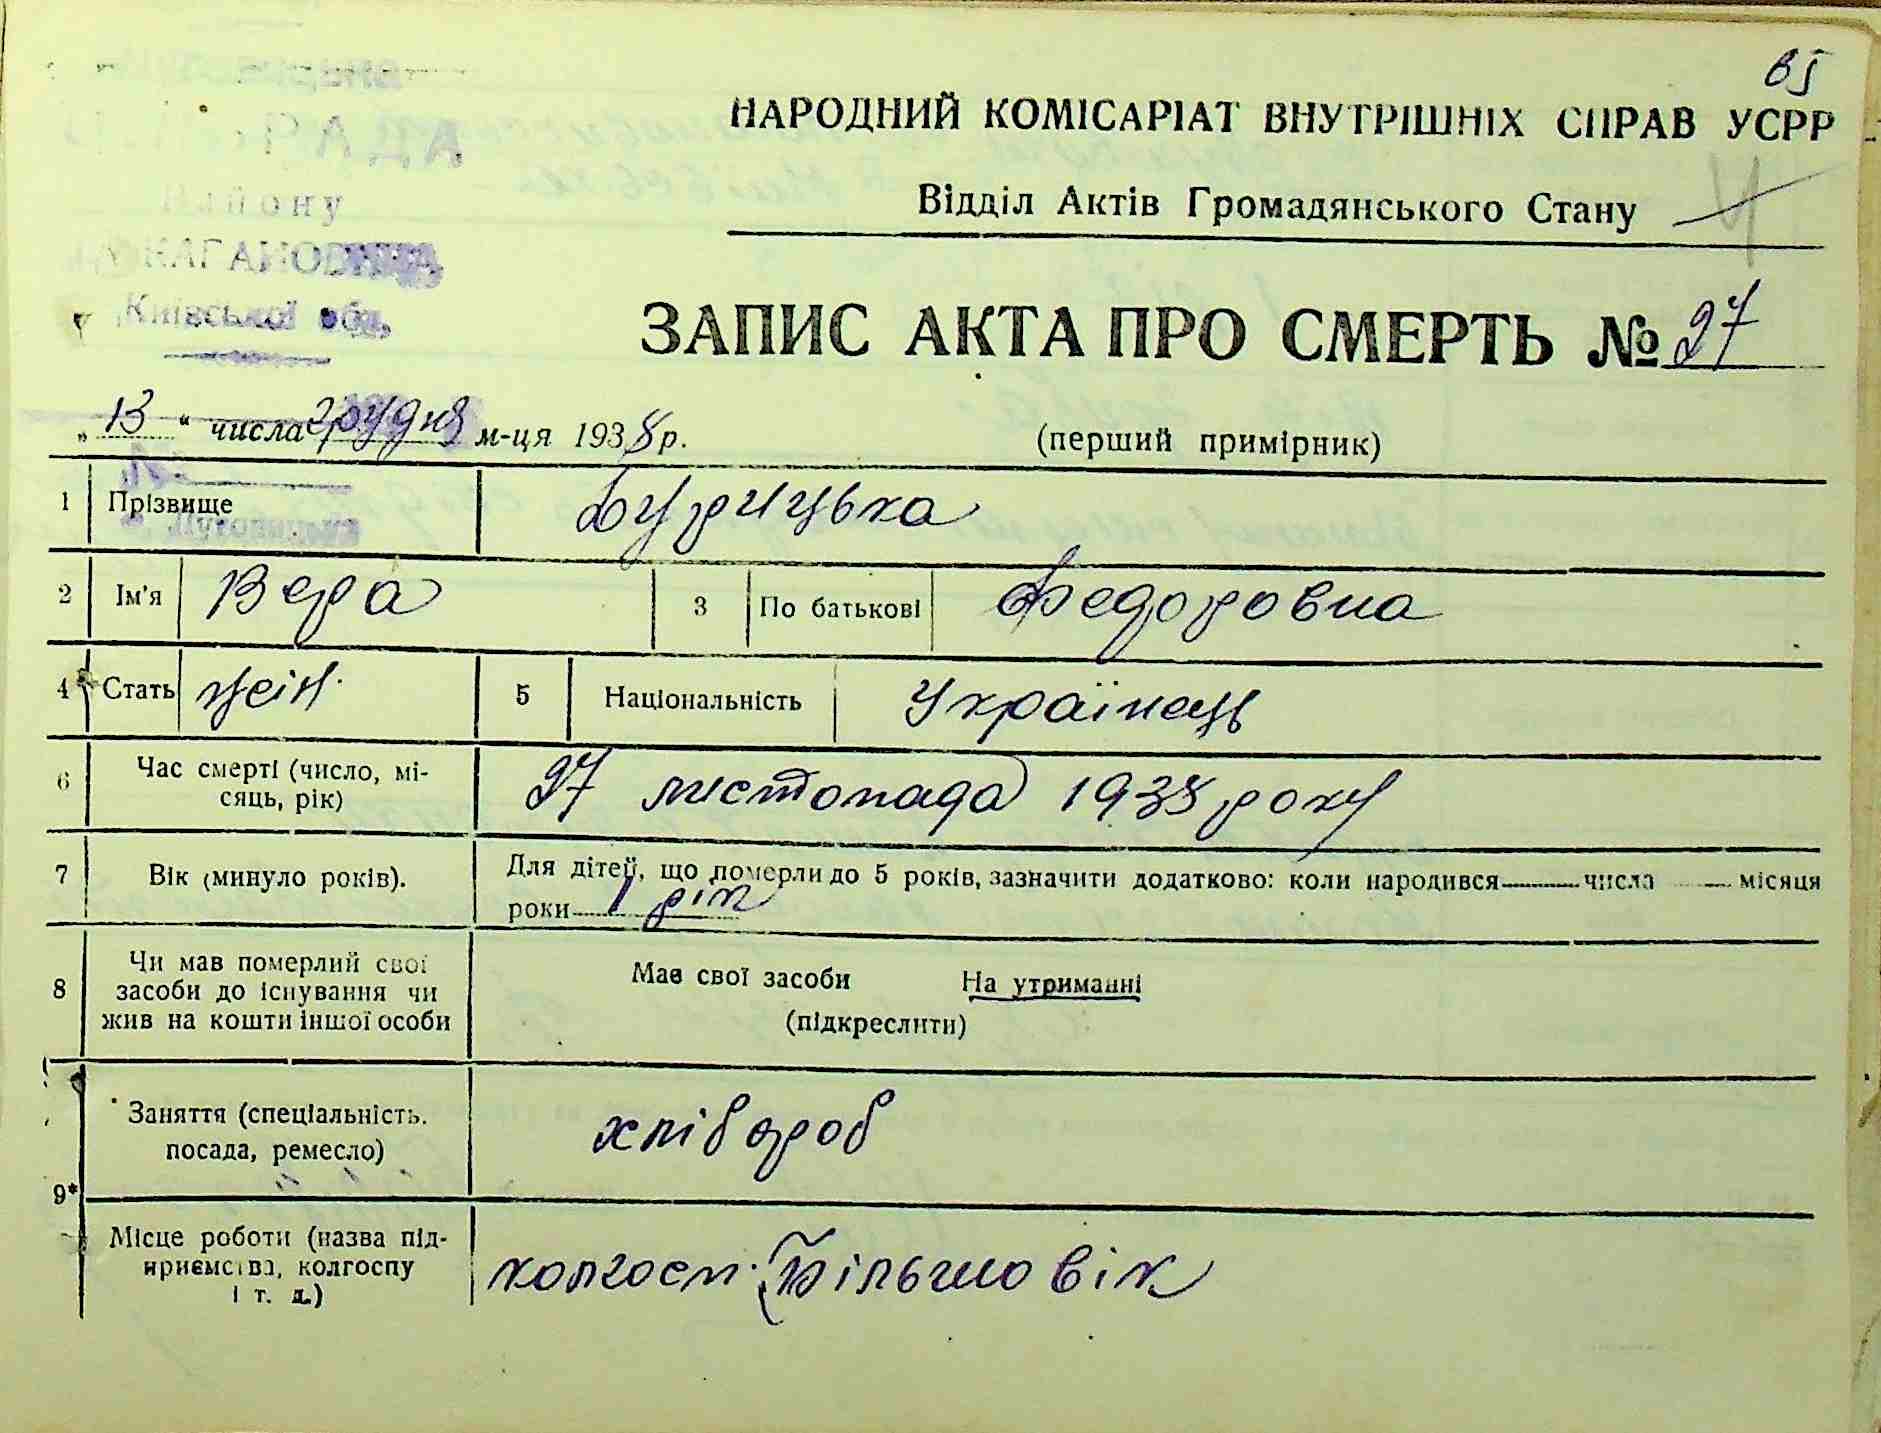 65
НАРОДНИЙ КОМІСАРІАТ ВНУТРІШНІХ СПРАВ УСРР
Відділ Актів Громадянського Стану
Району
КАГАНОВИЧА
Київської обл.
ЗАПИС АКТА ПРО СМЕРТЬ № 27
„13“ числа грудня м-ця 1938 р.
(перший примірник)
1 Прізвище Бурицька
2 Ім'я Вера 3 По батькові Федоровна
4 Стать жін. 5 Національність Українець
6 Час смерті (число, мі-
сяць, рік) 27 листопада 1938 року
7 Вік (минуло років). Для дітей, що померли до 5 років, зазначити додатково: коли народився числа місяця
роки 1 рік
8 Чи мав померлий свої
засоби до існування чи
жив на кошти іншої особи
Має свої засоби На утриманні
(підкреслити)
Заняття (спеціальність.
посада, ремесло) хлібороб
9*
Місце роботи (назва під-
приємства, колгоспу
і т. д.) колгосп. Більшовік